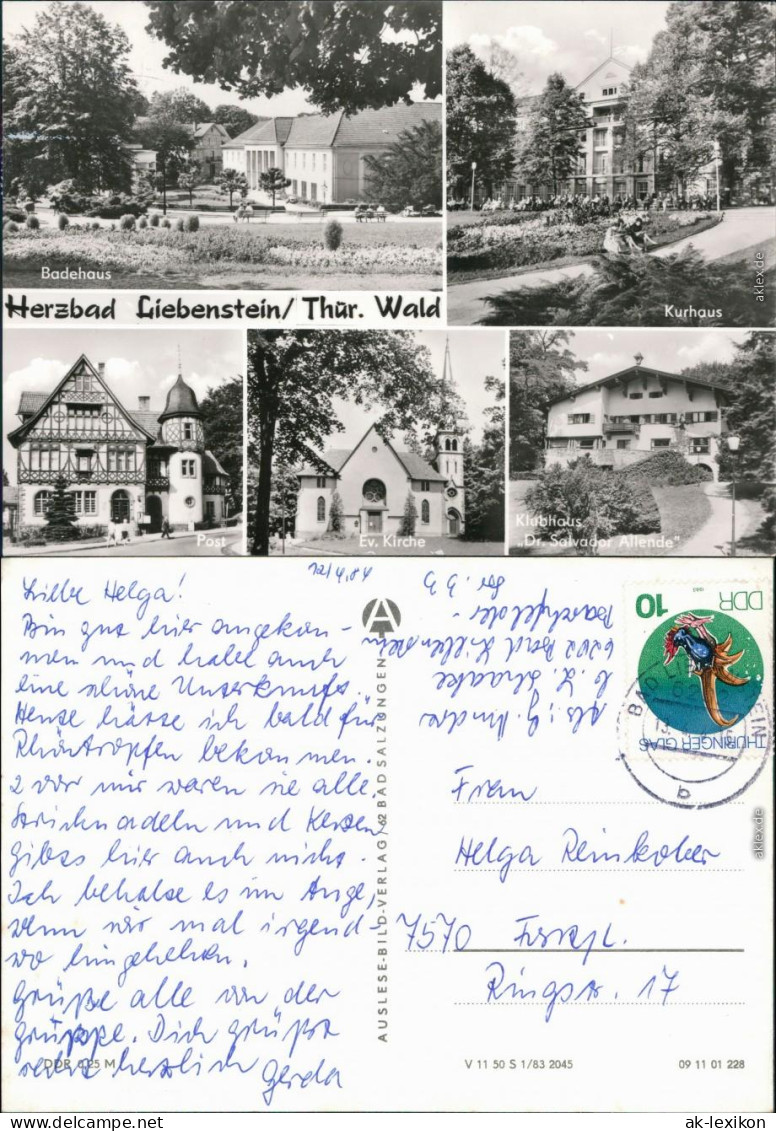 Badehaus
Kurhaus
Herzbad Liebenstein/Thür. Wald
Post
Ev. Kirche
Klubhaus
"Dr. Salvador Allende"
Liebe Helga!
12/4.84
Bin gut hier angekom-
men und habe auch
eine schöne Unterkunft.
Heute hätte ich bald für
Rhöntropfen bekommen.
2 vor mir waren sie alle.
Stricknadeln und Kerzen
gibts hier auch nicht.
Ich behalte es im Auge,
wenn wir mal irgend-
wo hingehen.
Grüße alle von der
Gruppe. Dich grüßt
recht herzlich
Gerda
Abs.: G.
6202 Bad Liebenstein
Barchfelder-
Str.
AUSLESE-BILD-VERLAG 62 BAD SALZUNGEN
DDR
10
THÜRINGER GLAS
BAD LIEBENSTEIN
62
b
Frau
Helga Reinkober
7570 Forst
Ringstr. 17
DDR 0,25 M
V 11 50 S 1/83 2045
09 11 01 228
aklex.de
aklex.de
www.ak-lexikon.de
ak-lexikon.com